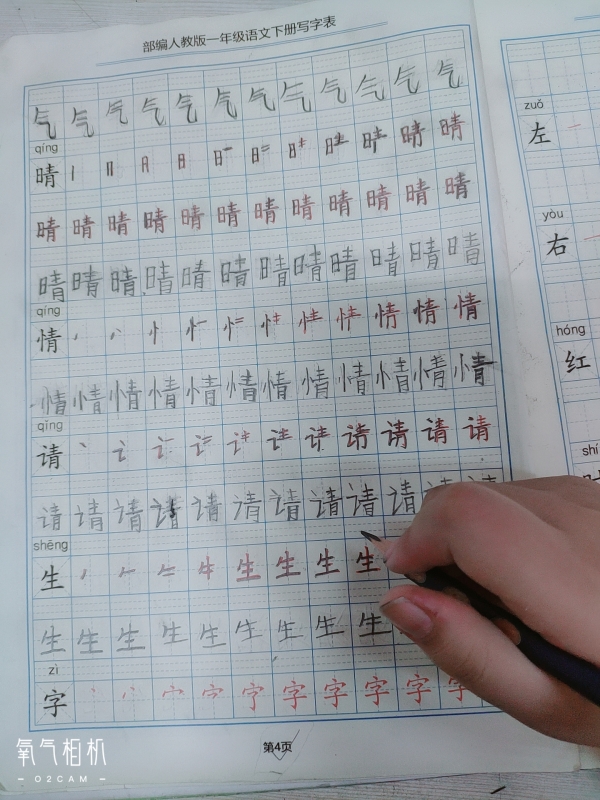 部编人教版一年级语文下册写字表
气 气 气 气 气 气 气 气 气 气 气 气
qíng
晴 晴 晴
晴 晴 晴 晴 晴 晴 晴 晴 晴 晴 晴 晴
晴 晴 晴 晴 晴 晴 晴 晴 晴 晴 晴 晴
qíng
情 情 情 情
情 情 情 情 情 情 情 情 情 情 情 情
qǐng
请 请 请 请 请
请 请 请 请 请 请 请 请 请 请
shēng
生 生 生 生 生
生 生 生 生 生 生 生 生 生
zì
字 字 字 字 字 字 字
第4页
zuǒ
左
yòu
右
hóng
红
shí
氧气相机
O2CAM